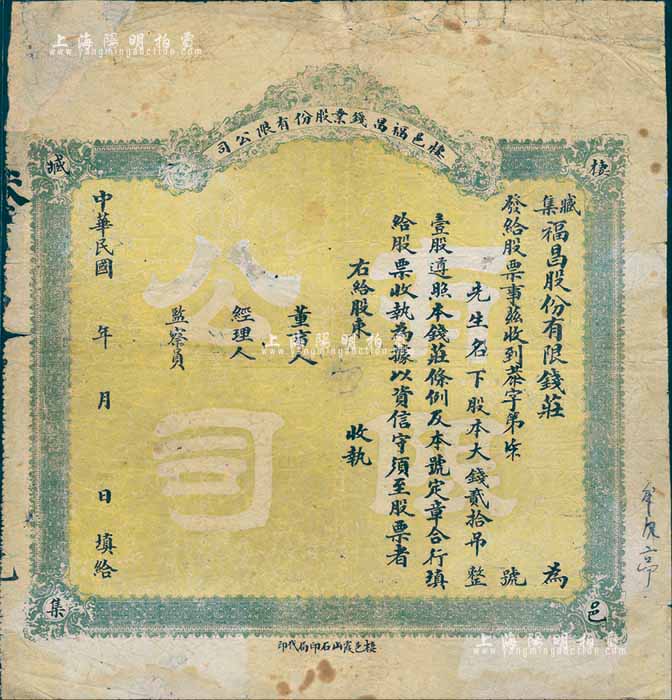 上海陽明拍賣
www.yangmingauction.com
棲邑福昌錢業股份有限公司
棲
邑
臧
集
臧集福昌股份有限錢莊 為
發給股票事茲收到 字第 號
先生名下股本大錢貳拾吊整
壹股遵照本錢莊條例及本號定章合行填
給股票收執為據以資信守須至股票者
右給股東 收執
董事人
經理人
監察員
中華民國 年 月 日 填給
有限
公司
棲邑霞山石印局代印
上海陽明拍賣
www.yangmingauction.com
上海陽明拍賣
www.yangmingauction.com